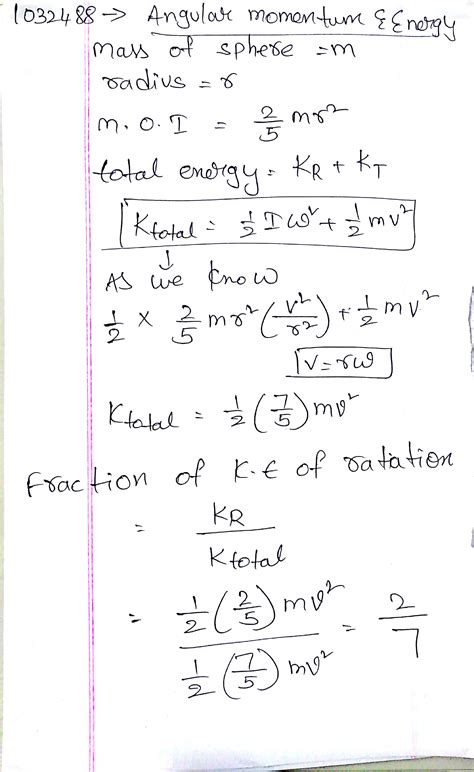 1032488 → Angular momentum & Energy
mass of sphere = m
radius = r
m.O.I = 2/5 mr²
total energy = KR + KT
Ktotal = 1/2 Iω² + 1/2 mv²
↓
As we know
1/2 × 2/5 mr² (v²/r²) + 1/2 mv²
v = rω
Ktotal = 1/2 (7/5) mv²
Fraction of K.E of ratation
= KR / Ktotal
= 1/2 (2/5) mv² / 1/2 (7/5) mv² = 2/7